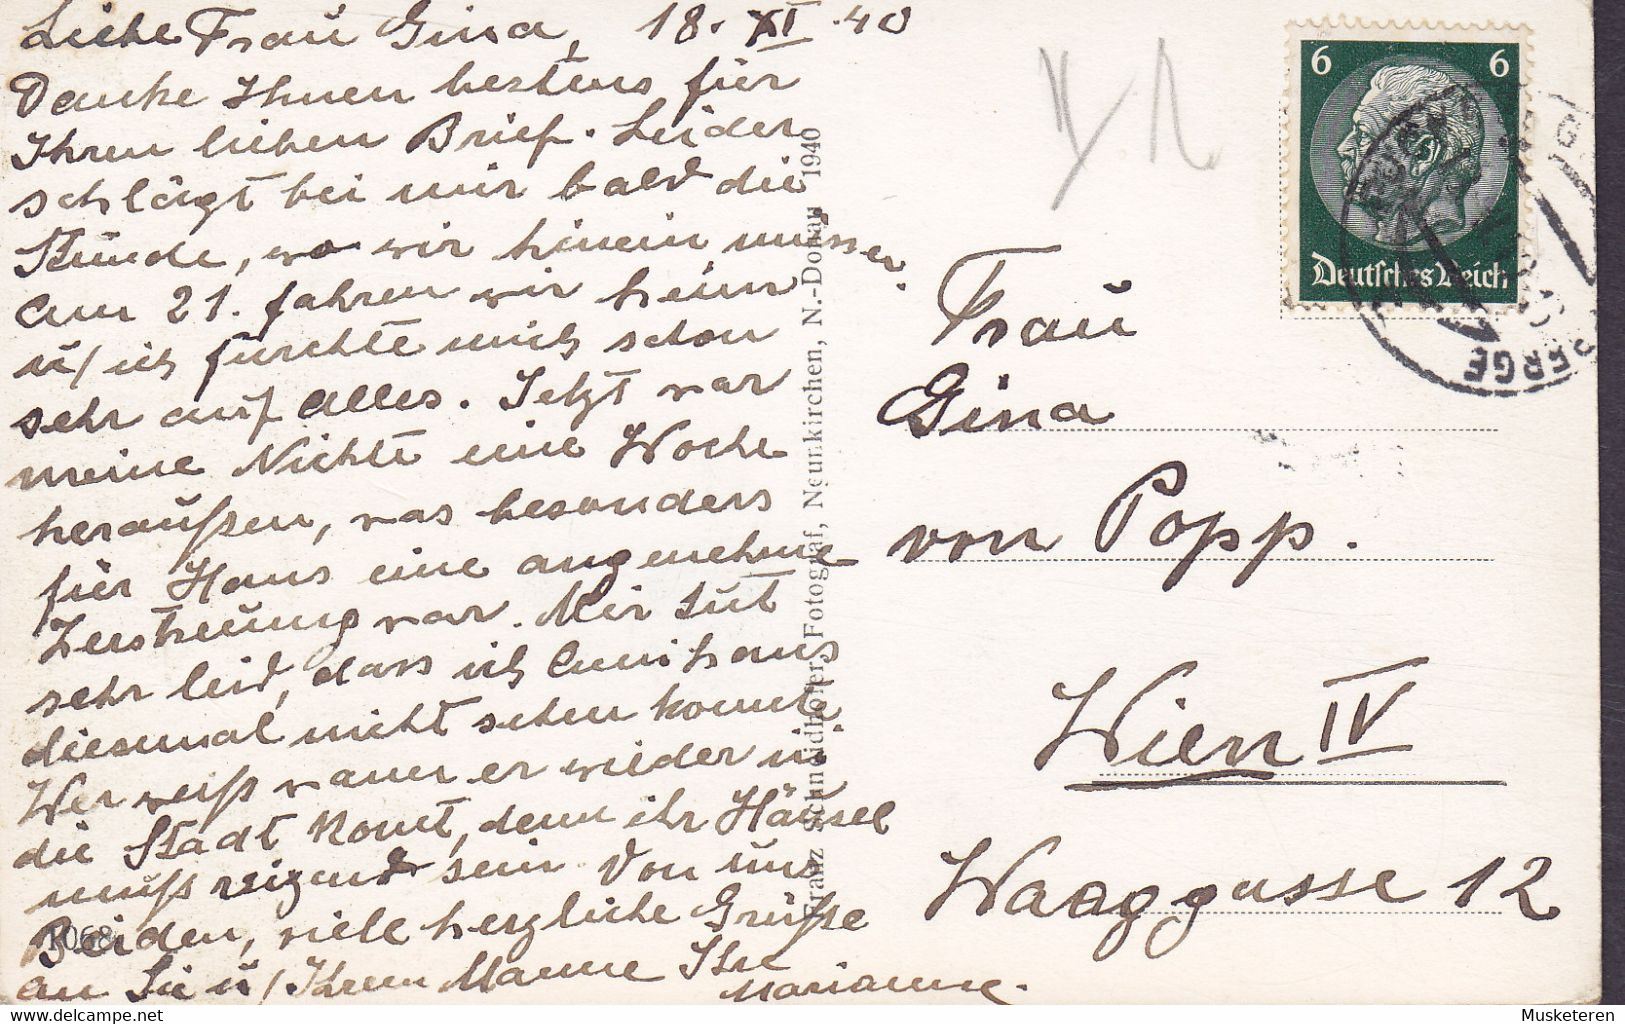 Liebe Frau Gina, 18. XI. 40
Danke Ihnen bestens für
Ihren lieben Brief. Leider
schlägt bei mir bald die
Stunde, wo wir hinein müssen.
Am 21. fahren wir heim
u/ ich fürchte mich schon
sehr auf alles. Jetzt war
meine Nichte eine Woche
heraußen, was besonders
für Hans eine angenehme
Zerstreuung war. Mir tut
sehr leid, dass ich
diesmal nicht sehen konnte.
Wer weiß wann er wieder in
die Stadt komt, denn ihr Häusel
muß reizend sein. Von uns
Beiden, viele herzliche Grüße
an Sie u/ Ihrem Manne Ihre
Marianne.
1068
Franz Schmidhofer, Fotograf, Neunkirchen, N.-Donau 1940
6 6
Deutsches Reich
Frau
Gina
von Popp.
Wien IV
Waaggasse 12
Musketeren @ delcampe.net